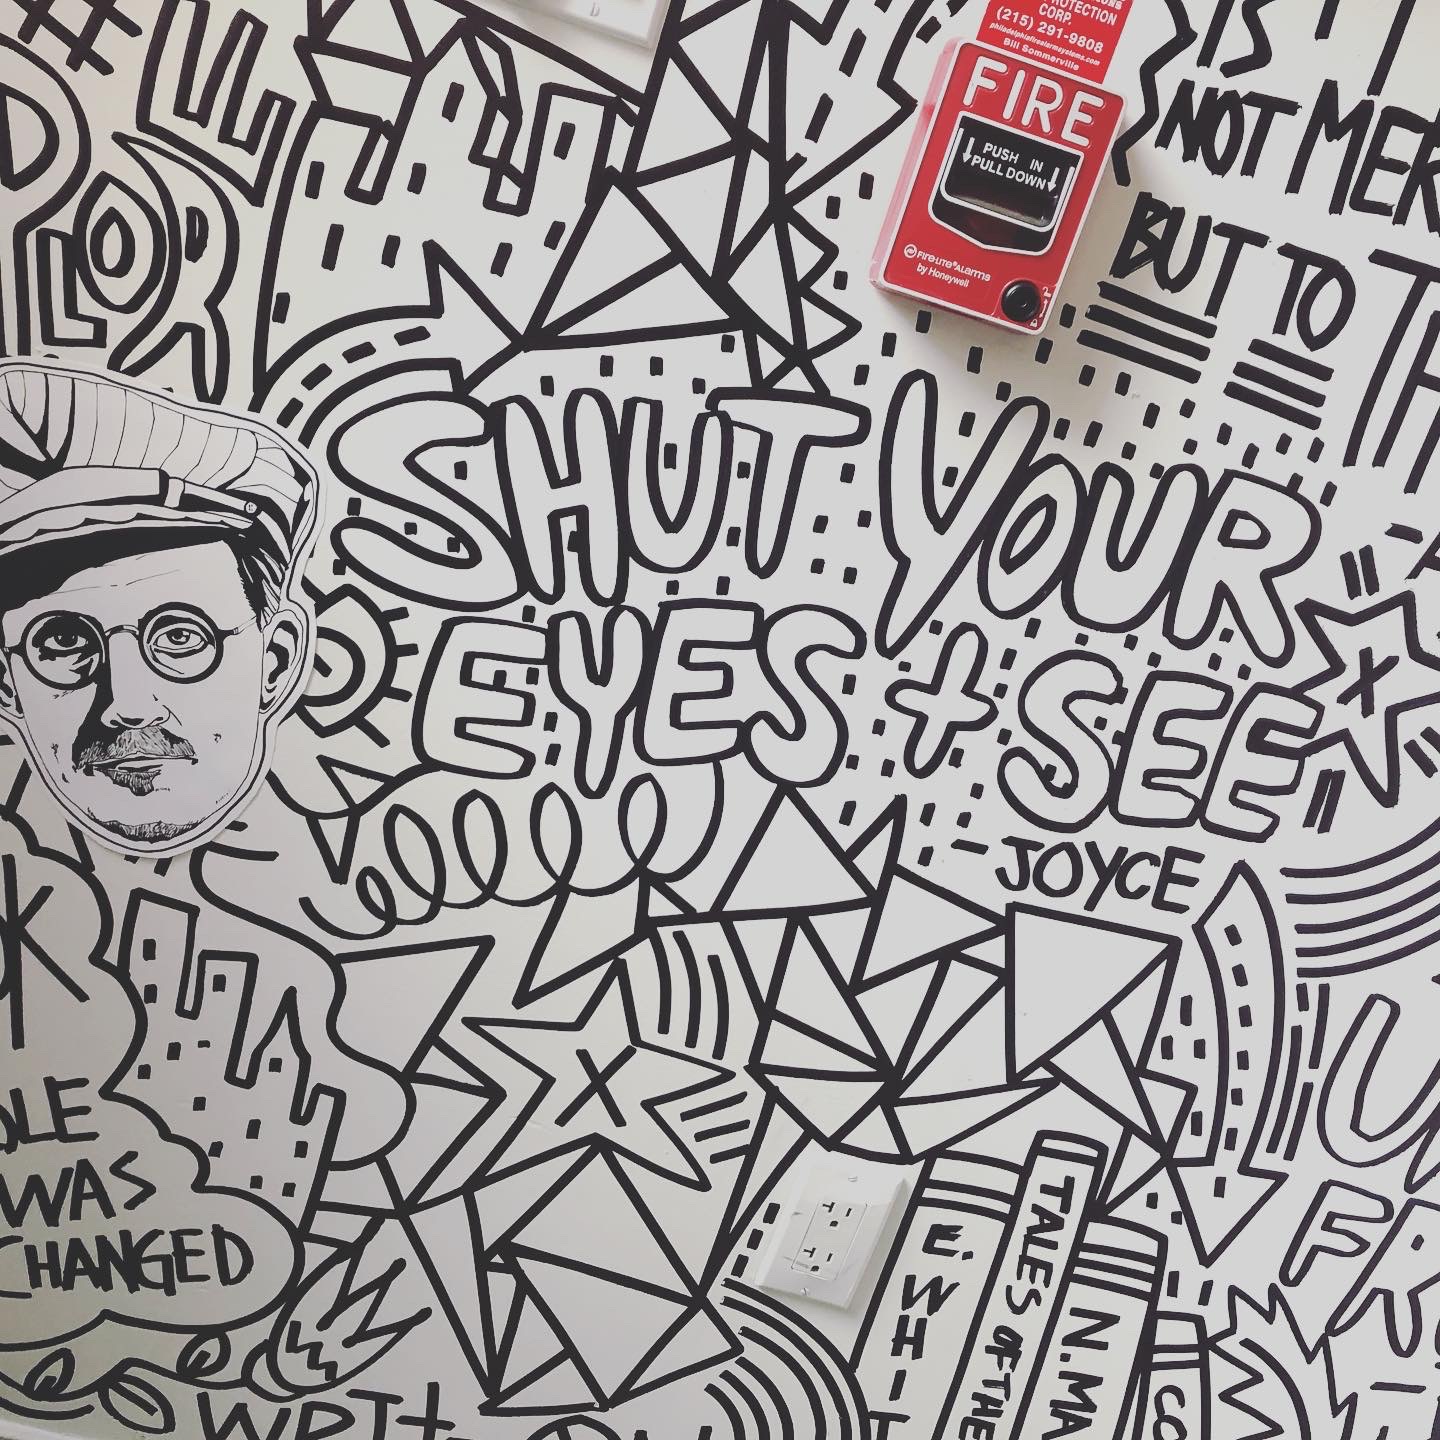 PROTECTION
CORP.
(215) 291-9808
philadelphiafirealarmsystems.com
Bill Sommerville
FIRE
PUSH IN
PULL DOWN
FIRE-LITE® ALARMS
by Honeywell
IS
NOT MER
BUT TO
PLOR
SHUT YOUR
EYES + SEE
- JOYCE
WAS
CHANGED
E. WHIT
TALES OF THE
N. MA
CO
FR